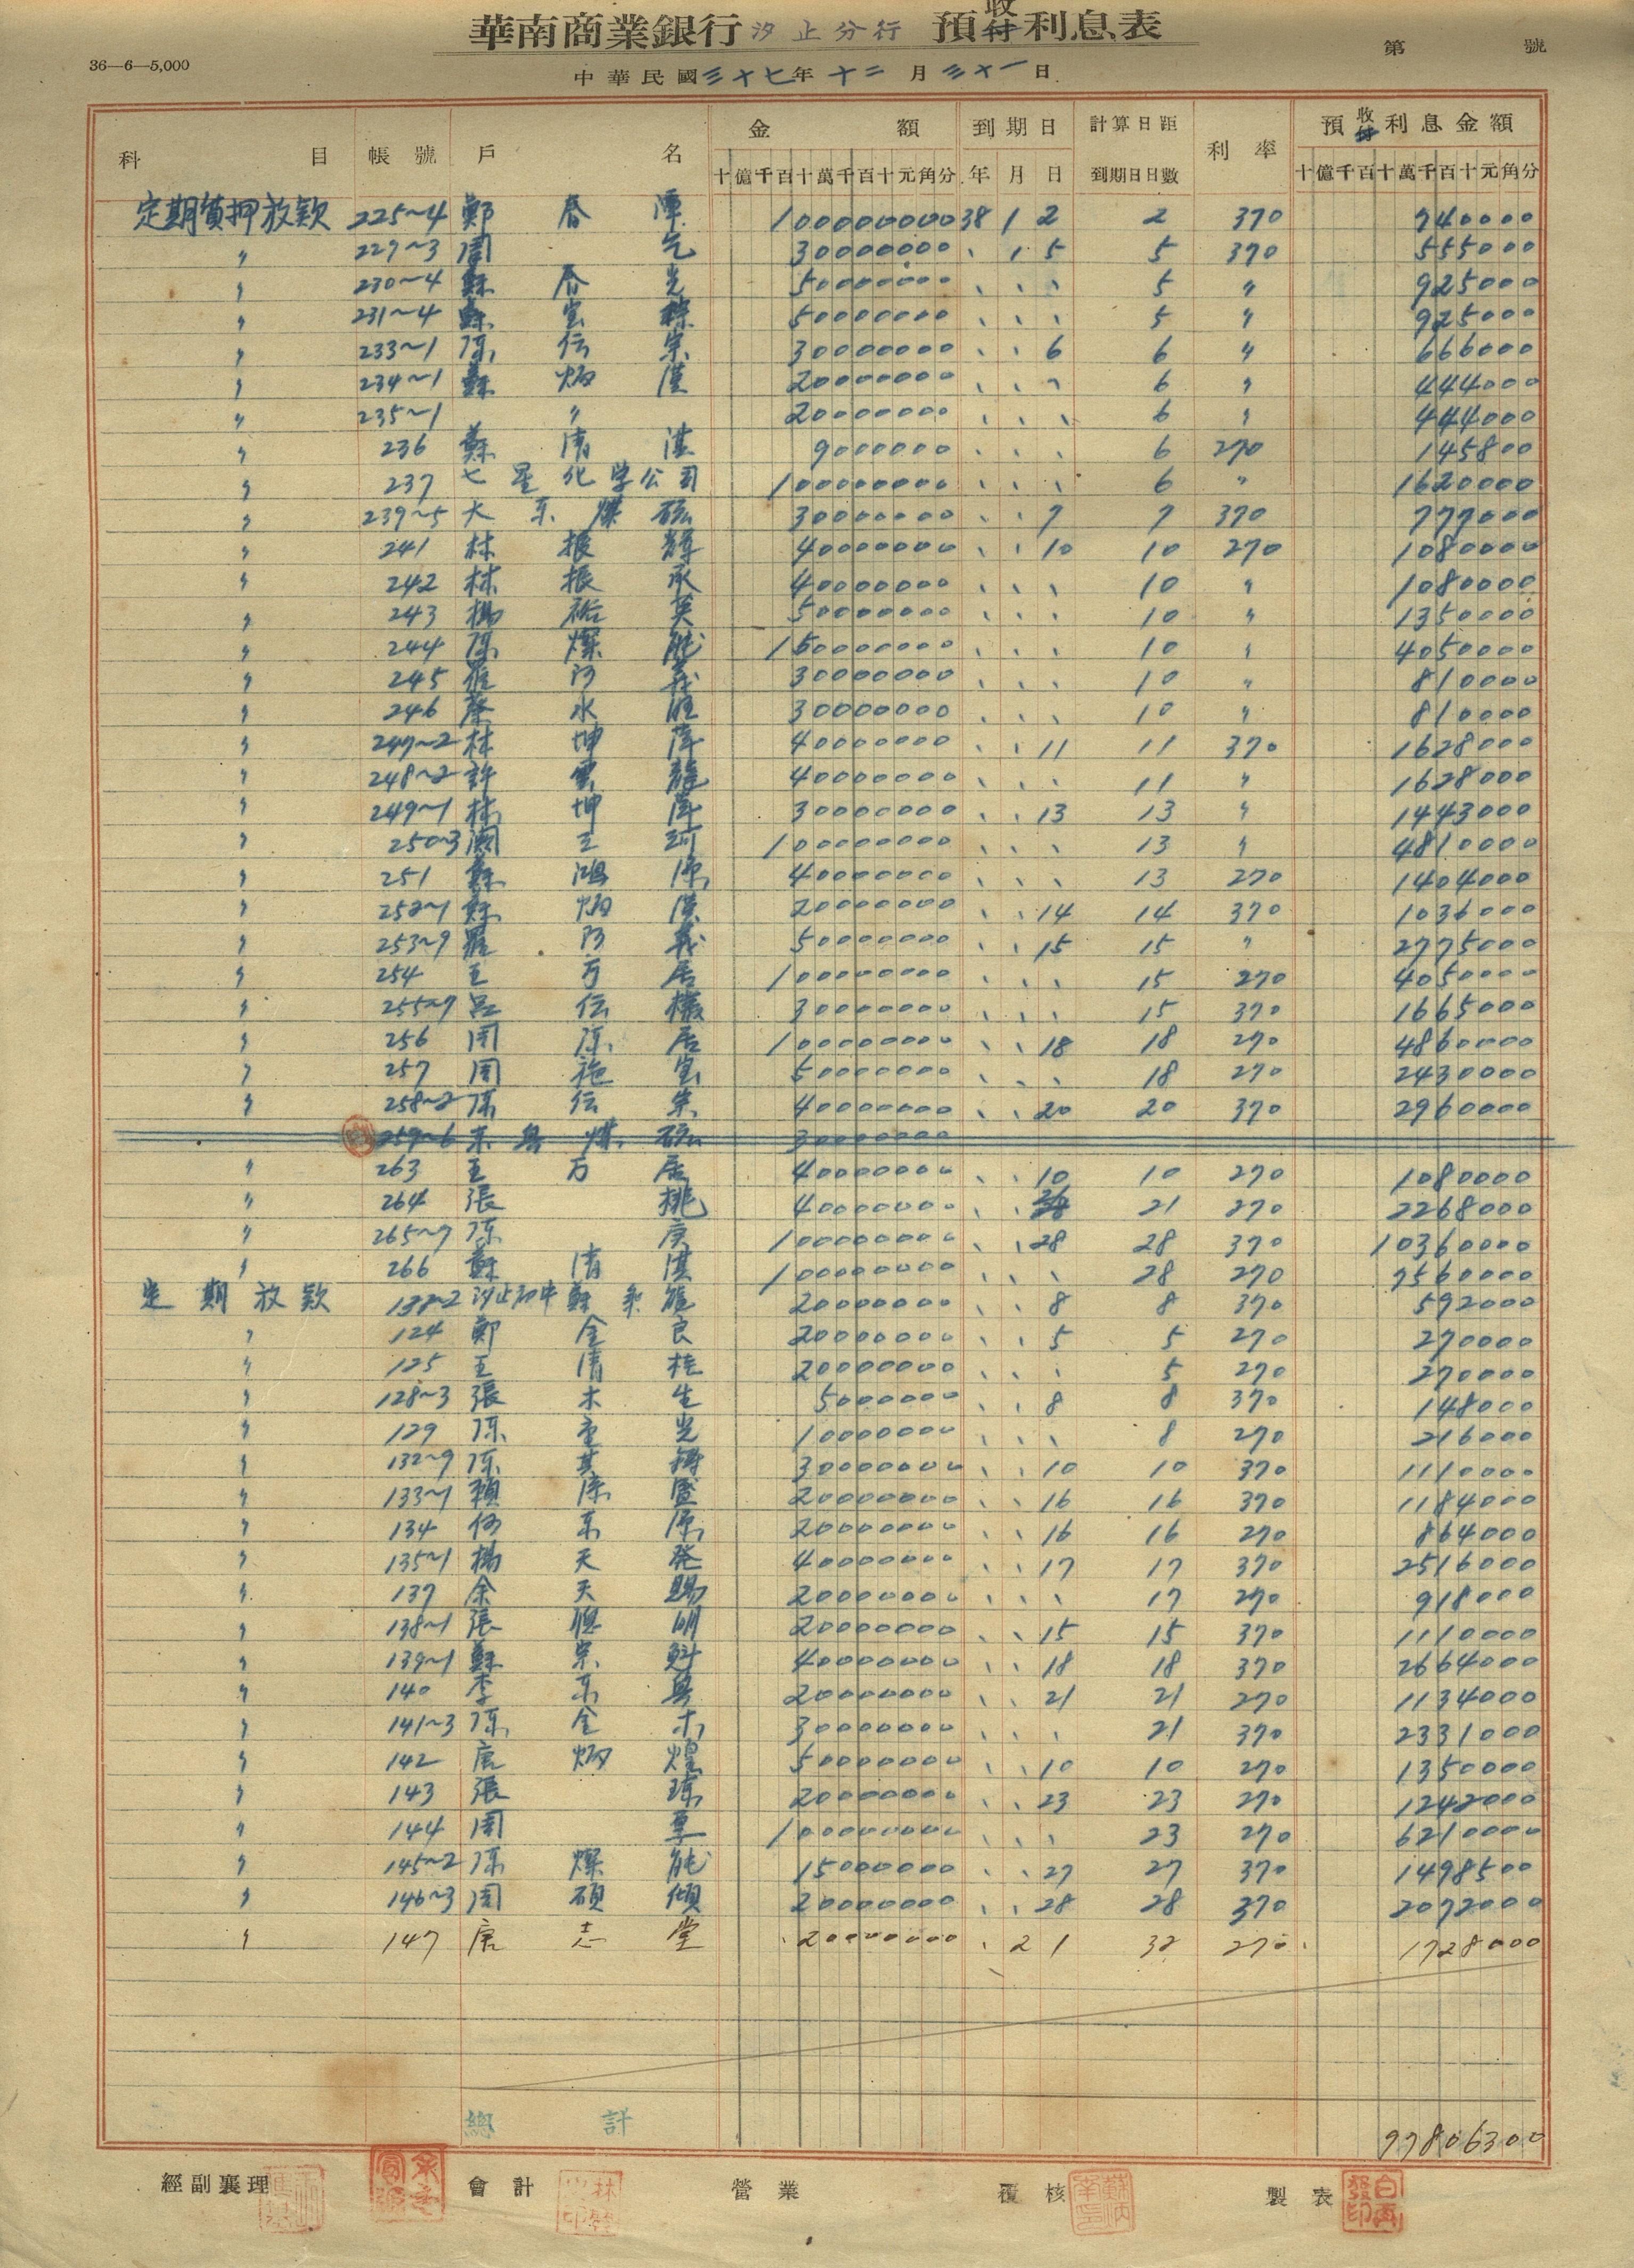 華南商業銀行汐止分行 預收付利息表
36—6—5,000
第 號
中華民國三十七年十二月三十一日
科目 帳號 戶名 金額 到期日 計算日距到期日日數 利率 預收付利息金額
十億千百十萬千百十元角分 年 月 日 十億千百十萬千百十元角分
定期質押放款 225~4 鄭春潭 100000000 38 1 2 2 370 740000
〃 229~3 周乞 30000000 、 1 5 5 370 555000
〃 230~4 蘇春光 50000000 、 、 、 5 〃 925000
〃 231~4 蘇宝 50000000 、 、 、 5 〃 925000
〃 233~1 陈伝宗 30000000 、 、 6 6 〃 666000
〃 234~1 蘇炳漢 20000000 、 、 、 6 〃 444000
〃 235~1 〃 20000000 、 、 、 6 〃 444000
〃 236 蘇清淇 9000000 、 、 、 6 270 145800
〃 237 七星化学公司 100000000 、 、 、 6 〃 1620000
〃 239~5 大东煤砿 30000000 、 、 7 7 370 777000
〃 241 林振輝 40000000 、 、 10 10 270 1080000
〃 242 林振承 40000000 、 、 、 10 〃 1080000
〃 243 楊裕英 50000000 、 、 、 10 〃 1350000
〃 244 陈燦能 150000000 、 、 、 10 〃 4050000
〃 245 羅阿義 30000000 、 、 、 10 〃 810000
〃 246 蔡水旺 30000000 、 、 、 10 〃 810000
〃 247~2 林坤萍 40000000 、 、 11 11 370 1628000
〃 248~2 許雲龍 40000000 、 、 、 11 〃 1628000
〃 249~1 林坤萍 30000000 、 、 13 13 〃 1443000
〃 250~3 闕三河 100000000 、 、 、 13 〃 4810000
〃 251 蘇鴻源 40000000 、 、 、 13 270 1404000
〃 252~1 蘇炳漢 20000000 、 、 14 14 370 1036000
〃 253~9 羅阿義 50000000 、 、 15 15 〃 2775000
〃 254 王万居 100000000 、 、 、 15 270 4050000
〃 255~7 呂伝機 30000000 、 、 、 15 370 1665000
〃 256 周陈居 100000000 、 、 18 18 270 4860000
〃 257 周施宝 50000000 、 、 、 18 270 2430000
〃 258~2 陈伝宗 40000000 、 、 20 20 370 2960000
259~6 东興煤砿 30000000
〃 263 王万居 40000000 、 、 10 10 270 1080000
〃 264 張桃 40000000 、 、 21 21 270 2268000
〃 265~7 陈庚 100000000 、 、 28 28 370 10360000
〃 266 蘇清淇 100000000 、 、 、 28 270 7560000
定期放款 138~2 汐止初中蘇 20000000 、 、 8 8 370 592000
〃 124 鄭金良 20000000 、 、 5 5 270 270000
〃 125 王清桂 20000000 、 、 、 5 270 270000
〃 128~3 張木生 5000000 、 、 8 8 370 148000
〃 129 陈光 10000000 、 、 、 8 270 216000
〃 132~9 陈其鐏 30000000 、 、 10 10 370 1110000
〃 133~1 賴添盛 20000000 、 、 16 16 370 1184000
〃 134 何东源 20000000 、 、 16 16 270 864000
〃 135~1 楊天発 40000000 、 、 17 17 370 2516000
〃 137 余天賜 20000000 、 、 、 17 270 918000
〃 138~1 張聰明 20000000 、 、 15 15 370 1110000
〃 139~1 蘇宗魁 40000000 、 、 18 18 370 2664000
〃 140 李东興 20000000 、 、 21 21 270 1134000
〃 141~3 陈金木 30000000 、 、 、 21 370 2331000
〃 142 唐炳煌 50000000 、 、 10 10 270 1350000
〃 143 張琼 20000000 、 、 23 23 270 1242000
〃 144 周草 100000000 、 、 、 23 270 6210000
〃 145~2 陈燦能 15000000 、 、 27 27 370 1498500
〃 146~3 周碩傾 20000000 、 、 28 28 370 2072000
〃 147 唐志堂 20000000 、 2 1 32 270 1728000
總計 97806300
經副襄理 會計 營業 覆核 製表